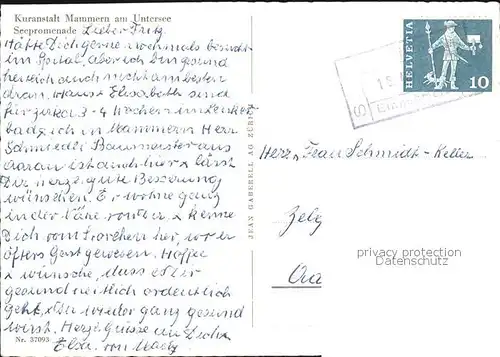 Kuranstalt Mammern am Untersee
Seepromenade Lieber Fritz
Hätte Dich gerne nochmals besucht
im Spital, aber ich bin gesund
heitlich auch nicht am besten
dran. Hans & Elisabeth sind
für zirka 3-4 Wochen im
bad & ich in Mammern. Herr
Schmiedli Baumeister aus
Aarau ist auch hier & lässt
Dir herzl. gute Besserung
wünschen. Er wohne ganz
in der Nähe von Dir & kenne
Dich vom her, wo er
öfters Gast gewesen. Hoffe
& wünsche, dass es Dir
gesundheitlich ordentlich
geht, & Du wieder ganz gesund
wirst. Herzl. Grüsse an Dich
Elsa. von
Nr. 37093
JEAN GABERELL AG ZÜRI
HELVETIA
10
Herrn Jean Schmidt-Keller
Zelg
Aa
privacy protection
Datenschutz